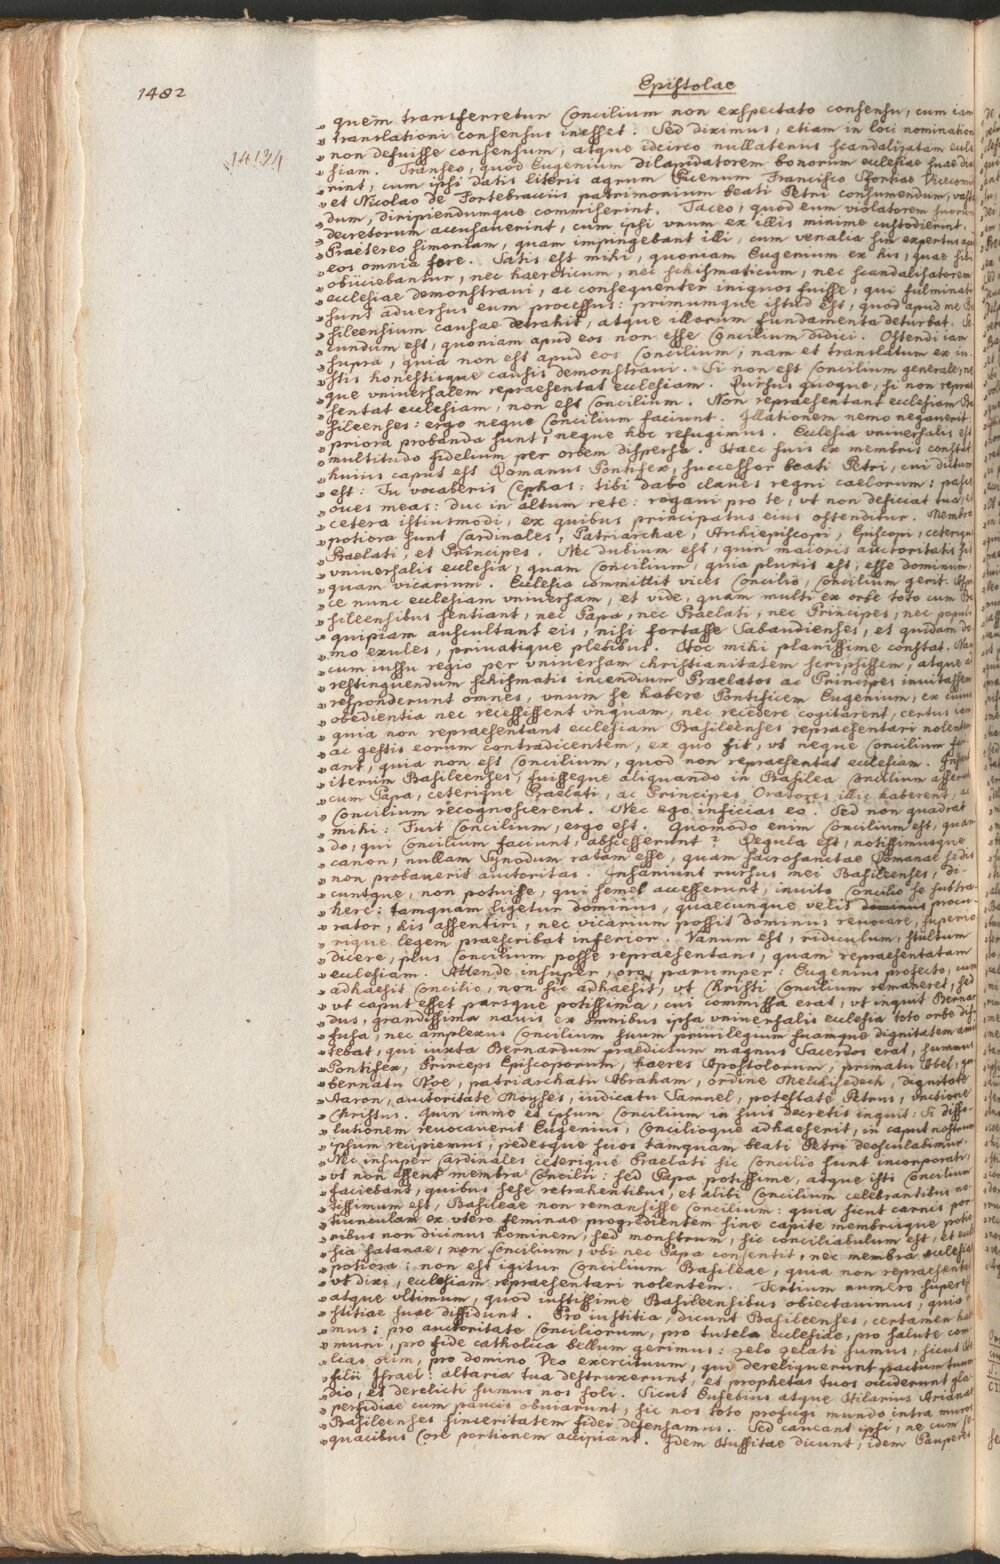 1482
Epistolae
„ quem transferretur Concilium non exspectato consensu, cum iam
„ translationi consensus inesset. Sed diximus, etiam in loci nomination
„ non defuisse consensum, atque idcirco nullatenus scandalizatam eccle
„ siam. Transeo, quod Eugenium dilapidatorem bonorum ecclesiae suae dix
„ rint, cum ipsi datis literis agrum Picenum Francisco Sfortiae Vicecomi
„ et Nicolao de Fortebraciis patrimonium beati Petri consumendum, vasta
„ dum, diripiendumque commiserint. Taceo, quod eum violatorem suorum
„ decretorum accusauerint, cum ipsi vnum ex illis minime custodierint.
„ Praetereo simoniam, quam impingebant illi, cum venalia sim expertus apu
„ eos omnia fore. Satis est mihi, quoniam Eugenium ex his, quae sibi
„ obiiciebantur, nec haereticum, nec schismaticum, nec scandalisatorem
„ ecclesiae demonstraui, ac consequenter iniquos fuisse, qui fulminati
„ sunt aduersus eum processus: primumque istud est, quod apud me Ba
„ sileensium causae detrahit, atque illorum fundamenta deturbat. Se
„ cundum est, quoniam apud eos non esse Concilium didici. Ostendi iam
„ supra, quia non est apud eos Concilium, nam et translatum ex iu
„ stis honestisque causis demonstraui. Si non est Concilium generale, ne
„ que vniuersalem repraesentat ecclesiam. Rursus quoque, si non reprae
„ sentat ecclesiam, non est Concilium. Non repraesentant ecclesiam Ba
„ sileenses: ergo neque Concilium faciunt. Illationem nemo negauerit
„ priora probanda sunt, neque hoc refugimus. Ecclesia vniuersalis est
„ multitudo fidelium per orbem dispersa. Haec suis ex membris constat
„ huius caput est Romanus Pontifex, successor beati Petri, cui dictum
„ est: Tu vocaberis Cephas: tibi dabo claues regni caelorum: pasce
„ oues meas: duc in altum rete: rogaui pro te, vt non deficiat tua, et
„ cetera istiusmodi, ex quibus principatus eius ostenditur. Membra
„ potiora sunt Cardinales, Patriarchae, Archiepiscopi, Episcopi, ceterique
„ Praelati, et Principes. Nec dubium est, quin maioris auctoritatis sit
„ vniuersalis ecclesia, quam Concilium, quia pluris est, esse dominum,
„ quam vicarium. Ecclesia committit vices Concilio, Concilium gerit.
„ ce nunc ecclesiam vniuersam, et vide, quam multi ex orbe toto cum Ba
„ sileensibus sentiant, nec Papa, nec Praelati, nec Principes, nec populi
„ quipiam auscultant eis, nisi fortasse Sabaudienses, et quidam do
„ mo exules, priuatique plebibus. Hoc mihi planissime constat. Nam
„ cum iussu regio per vniuersam christianitatem scripsissem, atque ad
„ restinguendum schismatis incendium Praelatos ac Principes inuitassem
„ responderunt omnes, vnum se habere Pontificem Eugenium, ex cuius
„ obedientia nec recessissent vnquam, nec recedere cogitarent, certus sum
„ quia non repraesentant ecclesiam Basileenses repraesentari nolentem
„ ac gestis eorum contradicentem, ex quo fit, vt neque Concilium faci
„ ant, quia non est Concilium, quod non repraesentat ecclesiam.
„ iterum Basileenses, fuisseque aliquando in Basilea Concilium asserunt
„ cum Papa, ceterique Praelati, ac Principes Oratores illic haberent, ac
„ Concilium recognoscerent. Nec ego inficias eo. Sed non quadrat
„ mihi: Fuit Concilium, ergo est. Quomodo enim Concilium est, quan
„ do, qui Concilium faciunt, abscesserunt? Regula est, notissimusque
„ canon, nullam Synodum ratam esse, quam sacrosanctae Romanae sedis
„ non probauerit auctoritas. Insaniunt rursus mei Basileenses, di-
„ cuntque, non potuisse, qui semel accesserunt, inuito Concilio se subtra-
„ here: tamquam ligetur dominus, quaecunque velis procu-
„ rator, his assentiri, nec vicarium possit dominus reuocare, superio
„ rique legem praescribat inferior. Vanum est, ridiculum, stultum
„ dicere, plus Concilium posse repraesentans, quam repraesentatam
„ ecclesiam. Attende insuper, oro, parumper: Eugenius profecto, cum
„ adhaesit Concilio, non sic adhaesit, vt Christi Concilium remaneret, sed
„ vt caput esset parsque potissima, cui commissa erat, vt inquit Bernar
„ dus, grandissima nauis ex omnibus ipsa vniuersalis ecclesia toto orbe dif
„ fusa, nec amplexus Concilium suum priuilegium suamque dignitatem amit
„ tebat, qui iuxta Bernardum praedictum magnus Sacerdos erat, summus
„ Pontifex, Princeps Episcoporum, haeres Apostolorum, primatu Abel, gu
„ bernatu Noe, patriarchatu Abraham, ordine Melchisedech, dignitate
„ Aaron, auctoritate Moyses, iudicatu Samuel, potestate Petrus, vnctione
„ Christus. Quin immo et ipsum Concilium in suis decretis inquit: Si disso-
„ lutionem reuocauerit Eugenius, Concilioque adhaeserit, in caput nostrum
„ ipsum recipiemus, pedesque suos tamquam beati Petri deosculabimur.
„ Nec insuper Cardinales ceterique Praelati sic Concilio sunt incorporati,
„ vt non essent membra Concilii: sed Papa potissime, atque isti Concilium
„ faciebant, quibus sese retrahentibus, et alibi Concilium celebrantibus no-
„ tissimum est, Basileae non remansisse Concilium: quia sicut carnis por-
„ tiunculam ex vtero feminae progredientem sine capite membrisque potio
„ ribus non dicimus hominem, sed monstrum, sic conciliabulum est, et eccle
„ sia satanae, non Concilium, vbi nec Papa consentit, nec membra ecclesiae
„ potiora: non est igitur Concilium Basileae, quia non repraesentat
„ vt dixi, ecclesiam repraesentari nolentem. Tertium numero superest
„ atque vltimum, quod iustissime Basileensibus obiectauimus, quia iu
„ stitiae suae diffidunt. Pro iustitia, dicunt Basileenses, certamen habe
„ mus: pro auctoritate Conciliorum, pro tutela ecclesiae, pro salute com
„ muni, pro fide catholica bellum gerimus: zelo zelati sumus, sicut He
„ lias olim, pro domino Deo exercituum, qui dereliquerunt pactum tuum
„ filii Israel: altaria tua destruxerunt, et prophetas tuos occiderunt gla
„ dio, et derelicti sumus nos soli. Sicut Eusebius atque Hilarius Arianae
„ perfidiae cum paucis obuiarunt, sic nos toto profugi mundo intra muros
„ Basileenses sinceritatem fidei defensamus. Sed caueant ipsi, ne cum se
„ quacibus Core portionem accipiant. Idem Hussitae dicunt, idem Pauperes